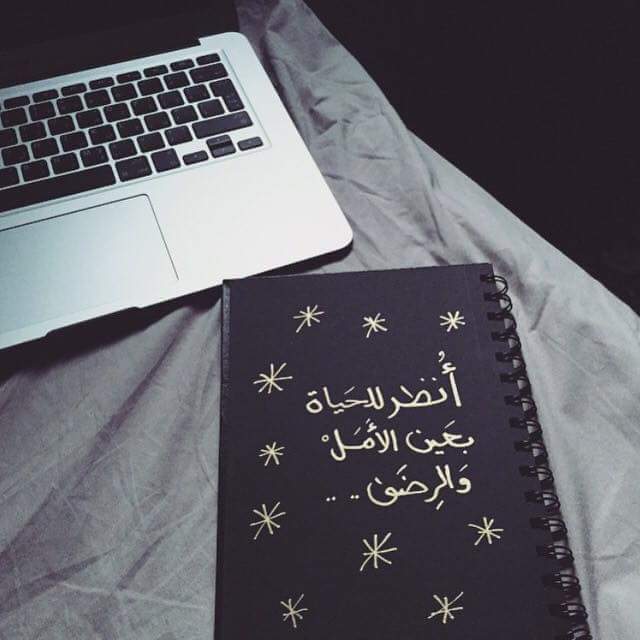 أُنظر للحَياة
بعَين الأمَلْ
وَالرِضَى ..